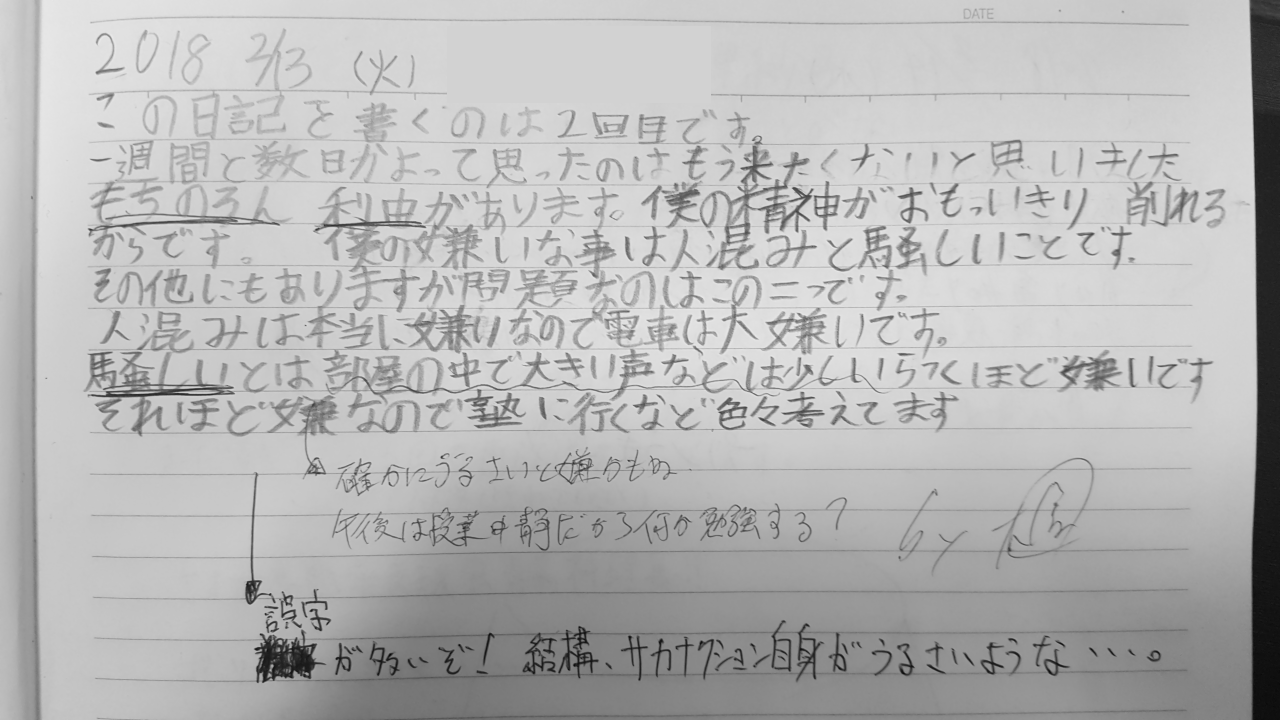 DATE
2018 2/13 (火)
この日記を書くのは2回目です。
一週間と数日かよって思ったのはもう来たくないと思いました
もちのろん 利由があります。僕の精神がおもいっきり 削れる
からです。 僕の嫌いな事は人混みと騒しいことです.
その他にもありますが問題なのはこの二つです。
人混みは本当に嫌いなので電車は大嫌いです。
騒しいとは部屋の中で大きい声などは少しいらつくほど嫌いです
それほど嫌なので塾に行くなど色々考えてます
確かにうるさいと嫌かもね
午後は授業中静だから何か勉強する?
by
誤字
が多いぞ! 結構、サカナクション自身がうるさいような…。